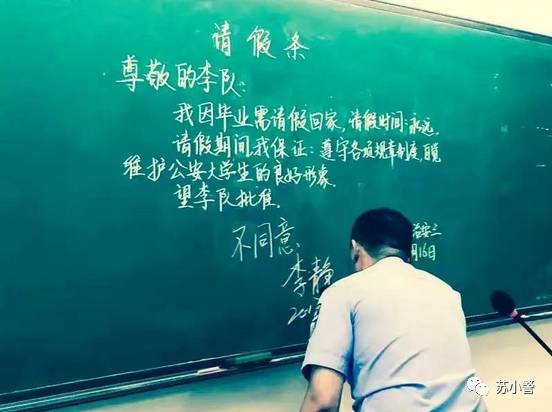 请假条
尊敬的李队:
我因毕业需请假回家,请假时间:永远。
请假期间,我保证:遵守各项规章制度,自觉
维护公安大学生的良好形象。
望李队批准。
治安三
月16日
不同意
李静
苏小警